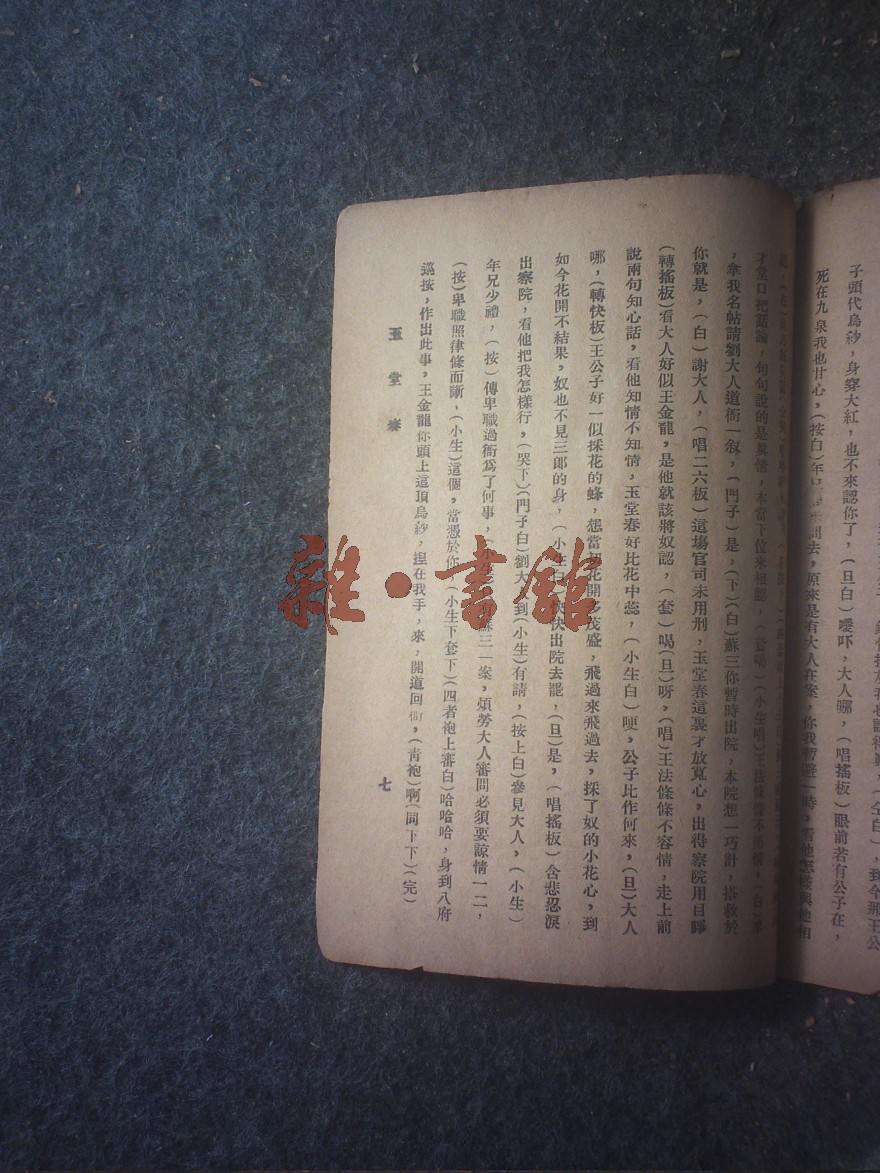 子頭代烏紗，身穿大紅，也不來認你了，（旦白）噯吓，大人哪，（唱搖板）眼前若有公子在，
死在九泉我也甘心，（按白）年兄 問去，原來是有大人在案，你我暫避一時，看他怎樣與他相
才堂口把話論，句句說的是眞情，本當下位來相認，
，拿我名帖請劉大人道衙一敘，（門子）是，（下）（白）蘇三你暫時出院，本院想一巧計，搭救於
你就是，（白）謝大人，（唱二六板）這塲官司未用刑，玉堂春這裏才放寬心，出得察院用目睜
（轉搖板）看大人好似王金龍，是他就該將奴認，（套）喝（旦）呀，（唱）王法條條不容情，走上前
說兩句知心話，看他知情不知情，玉堂春好比花中蕊，（小生白）哽，公子比作何來，（旦）大人
哪，（轉快板）王公子好一似採花的蜂，想當初花開多茂盛，飛過來飛過去，採了奴的小花心，到
如今花開不結果，奴也不見三郎的身，（小生白）快快出院去罷，（旦）是，（唱搖板）含悲忍淚
出察院，看他把我怎樣行，（哭下）（門子白）劉大人到（小生）有請，（按上白）參見大人，（小生）
年兄少禮，（按）傳卑職過衙爲了何事，（小生） 蘇三一案，煩勞大人審問必須要諒情一二，
（按）卑職照律條而斷，（小生）這個，當憑於你，（小生下套下）（四者袍上審白）哈哈哈，身到八府
巡按，作出此事，王金龍你頭上這頂烏紗，揑在我手，來，開道回衙，（青袍）啊（同下下）（完）
玉堂春
七
雜·書館